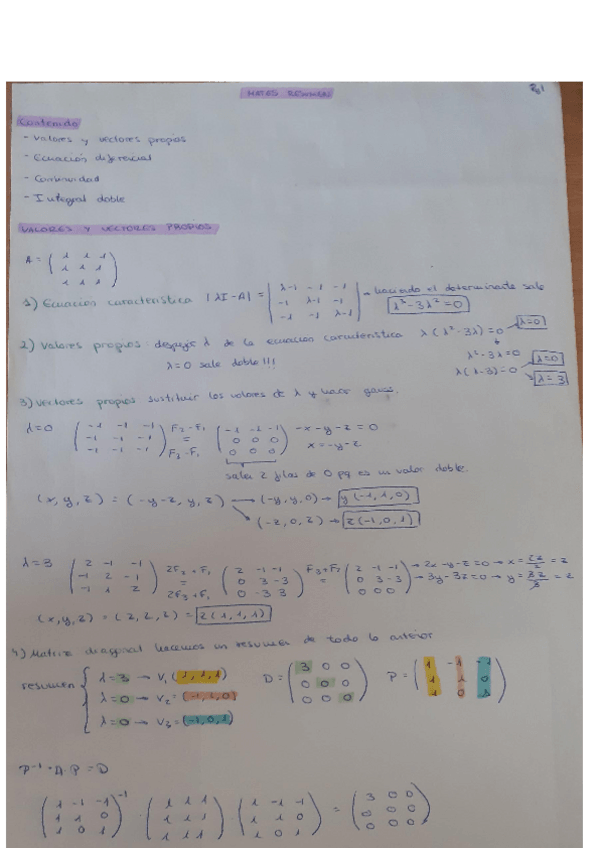 MATES RESUMEN
Contenido
- Valores y vectores propios
- Ecuación diferencial
- Continuidad
- Integral doble
VALORES Y VECTORES PROPIOS
A = ( 1 1 1
1 1 1
1 1 1 )
1) Ecuación característica |λI-A| = | λ-1 -1 -1
-1 λ-1 -1
-1 -1 λ-1 | → haciendo el determinante sale
λ³-3λ²=0
2) Valores propios: despejar λ de la ecuación característica λ(λ²-3λ)=0 → λ=0
λ=0 sale doble!!! λ²-3λ=0
λ(λ-3)=0 → λ=0
→ λ=3
3) Vectores propios sustituir los valores de λ y hacer gauss.
λ=0 ( -1 -1 -1
-1 -1 -1
-1 -1 -1 ) F2-F1 = F3-F1 ( -1 -1 -1
0 0 0
0 0 0 ) -x-y-z=0
x=-y-z
salen 2 filas de 0 pq es un valor doble.
(x,y,z) = (-y-z, y, z) → (-y,y,0) → y(-1,1,0)
→ (-z,0,z) → z(-1,0,1)
λ=3 ( 2 -1 -1
-1 2 -1
-1 -1 2 ) 2F2+F1 = 2F3+F1 ( 2 -1 -1
0 3 -3
0 -3 3 ) F3+F2 = ( 2 -1 -1
0 3 -3
0 0 0 ) → 2x-y-z=0 → x=2z/2=z
→ 3y-3z=0 → y=3z/3=z
(x,y,z) = (z,z,z) = z(1,1,1)
4) Matriz diagonal hacemos un resumen de todo lo anterior
resumen { λ=3 → V1 (1,1,1)
λ=0 → V2=(-1,1,0)
λ=0 → V3=(-1,0,1)
D = ( 3 0 0
0 0 0
0 0 0 ) P = ( 1 -1 -1
1 1 0
1 0 1 )
P⁻¹·A·P=D
( 1 -1 -1
1 1 0
1 0 1 )⁻¹ · ( 1 1 1
1 1 1
1 1 1 ) · ( 1 -1 -1
1 1 0
1 0 1 ) = ( 3 0 0
0 0 0
0 0 0 )